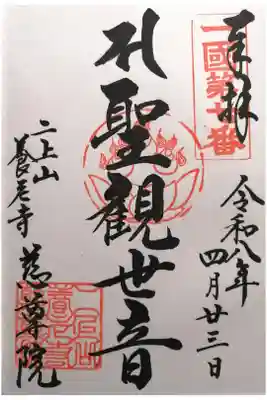 奉拝
一國第番
令和八年
四月廿三日
聖観世音
二上山
養老寺
慈尊院